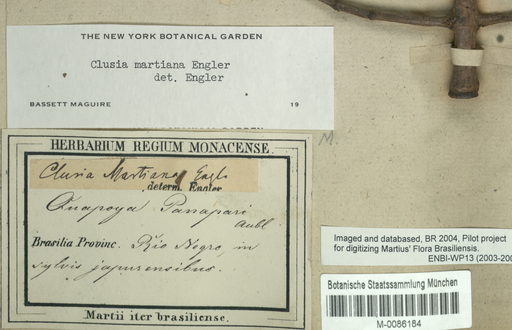 THE NEW YORK BOTANICAL GARDEN
Clusia martiana Engler
det. Engler
BASSETT MAGUIRE 19
HERBARIUM REGIUM MONACENSE.
Clusia Martiana Engl.
determ. Engler
Quapoya Panapari
Aubl.
Brasilia Provinc. Rio Negro, in
sylvis japurensibus.
Martii iter brasiliense.
M
Imaged and databased, BR 2004, Pilot project
for digitizing Martius' Flora Brasiliensis.
ENBI-WP13 (2003-200
Botanische Staatssammlung München
M-0086184